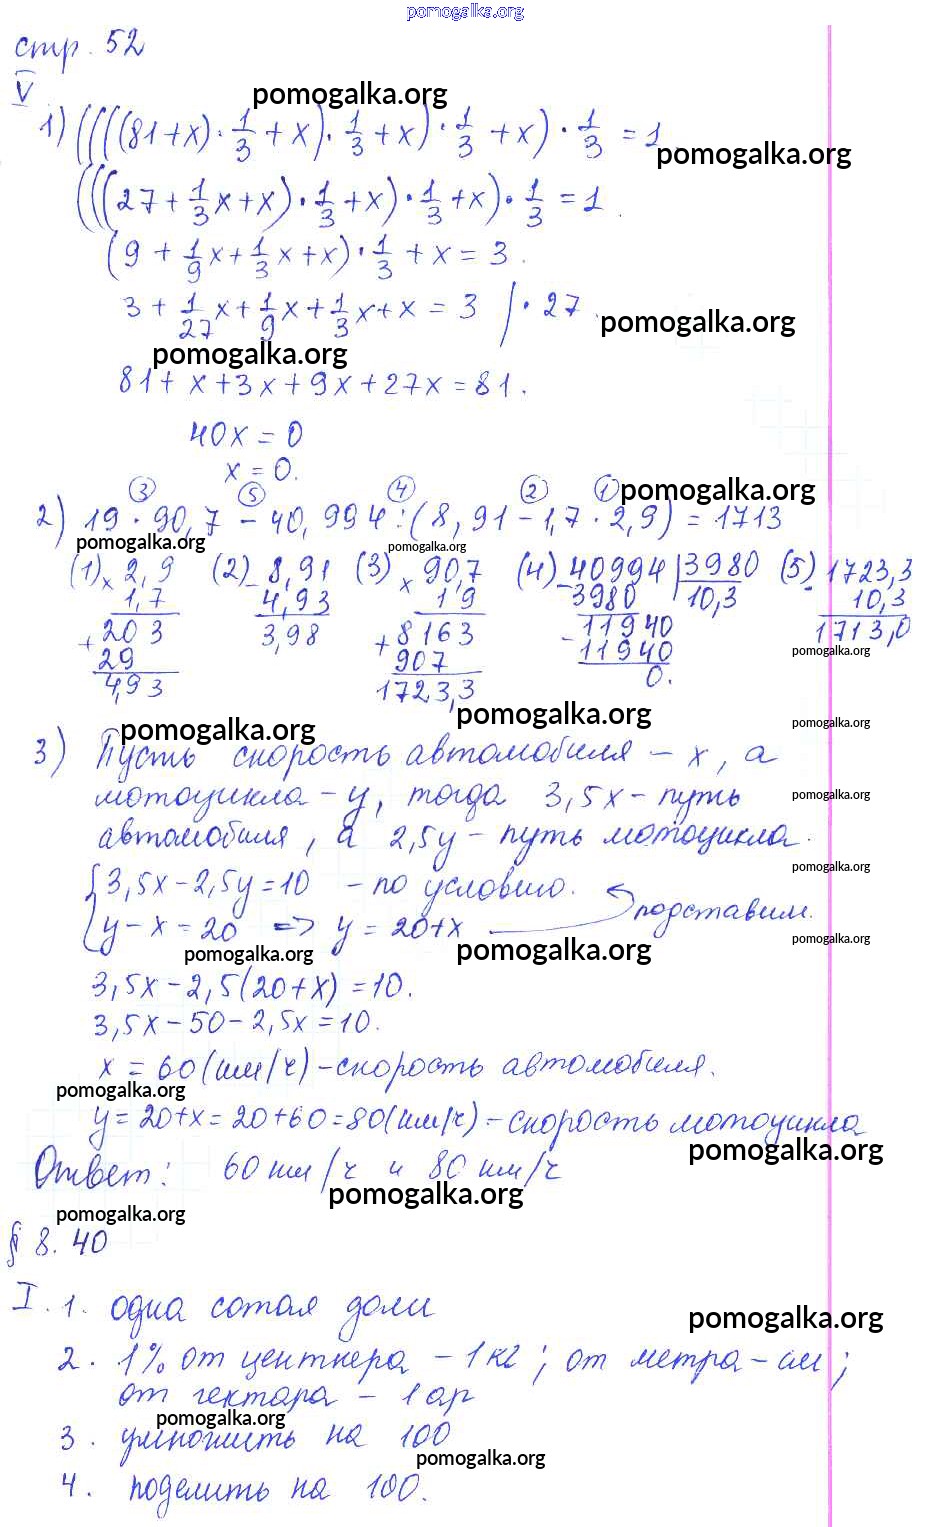 pomogalka.org
стр. 52
V
pomogalka.org
1) ((((81+x)·1/3+x)·1/3+x)·1/3+x)·1/3=1.
pomogalka.org
(((27+1/3x+x)·1/3+x)·1/3+x)·1/3=1.
(9+1/9x+1/3x+x)·1/3+x=3.
3+1/27x+1/9x+1/3x+x=3 |·27.
pomogalka.org
pomogalka.org
81+x+3x+9x+27x=81.
40x=0
x=0.
③ ⑤ ④ ② ① pomogalka.org
2) 19·90,7-40,994:(8,91-1,7·2,9)=1713
pomogalka.org pomogalka.org
(1) × 2,9 (2) - 8,91 (3) × 90,7 (4) - 40994 | 3980 (5) - 1723,3
1,7 4,93 19 3980 10,3 10,3
+ 203 3,98 + 8163 - 11940 1713,0
29 907 11940 pomogalka.org
4,93 1723,3 0.
pomogalka.org pomogalka.org pomogalka.org
3) Пусть скорость автомобиля – x, а
мотоцикла – y, тогда 3,5x – путь pomogalka.org
автомобиля, а 2,5y – путь мотоцикла.
pomogalka.org
{3,5x-2,5y=10 – по условию.
y-x=20 => y=20+x подставим.
pomogalka.org pomogalka.org pomogalka.org
3,5x-2,5(20+x)=10.
3,5x-50-2,5x=10.
x=60(км/ч) – скорость автомобиля.
pomogalka.org
y=20+x=20+60=80(км/ч) – скорость мотоцикла
pomogalka.org
Ответ: 60 км/ч и 80 км/ч
pomogalka.org
pomogalka.org
§ 8.40
I. 1. одна сотая доли
pomogalka.org
2. 1% от центнера – 1кг; от метра – см;
от гектара – 1ар
pomogalka.org
3. умножить на 100
pomogalka.org
4. поделить на 100.